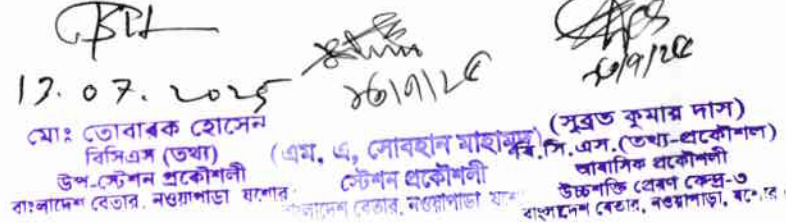 13.07.2025
মোঃ তোবারক হোসেন
বিসিএস (তথ্য)
উপ-স্টেশন প্রকৌশলী
বাংলাদেশ বেতার, নওয়াপাড়া যশোর
(এম, এ, সোবহান মাহামুদ)
স্টেশন প্রকৌশলী
বাংলাদেশ বেতার, নওয়াপাড়া
(সুব্রত কুমার দাস)
বি.সি.এস.(তথ্য-প্রকৌশল)
আবাসিক প্রকৌশলী
উচ্চশক্তি প্রেরণ কেন্দ্র-৩
বাংলাদেশ বেতার, নওয়াপাড়া,